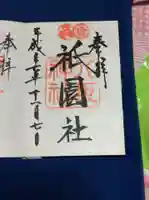 奉拝
祇園社
平成 年十一月七日
奉拝